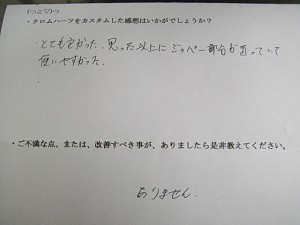 ・クロムハーツをカスタムした感想はいかがでしょうか？
とても良かった。思った以上にジッパー部分が合っていて
使いやすかった。
・ご不満な点、または、改善すべき事が、ありましたら是非教えてください。
ありません。